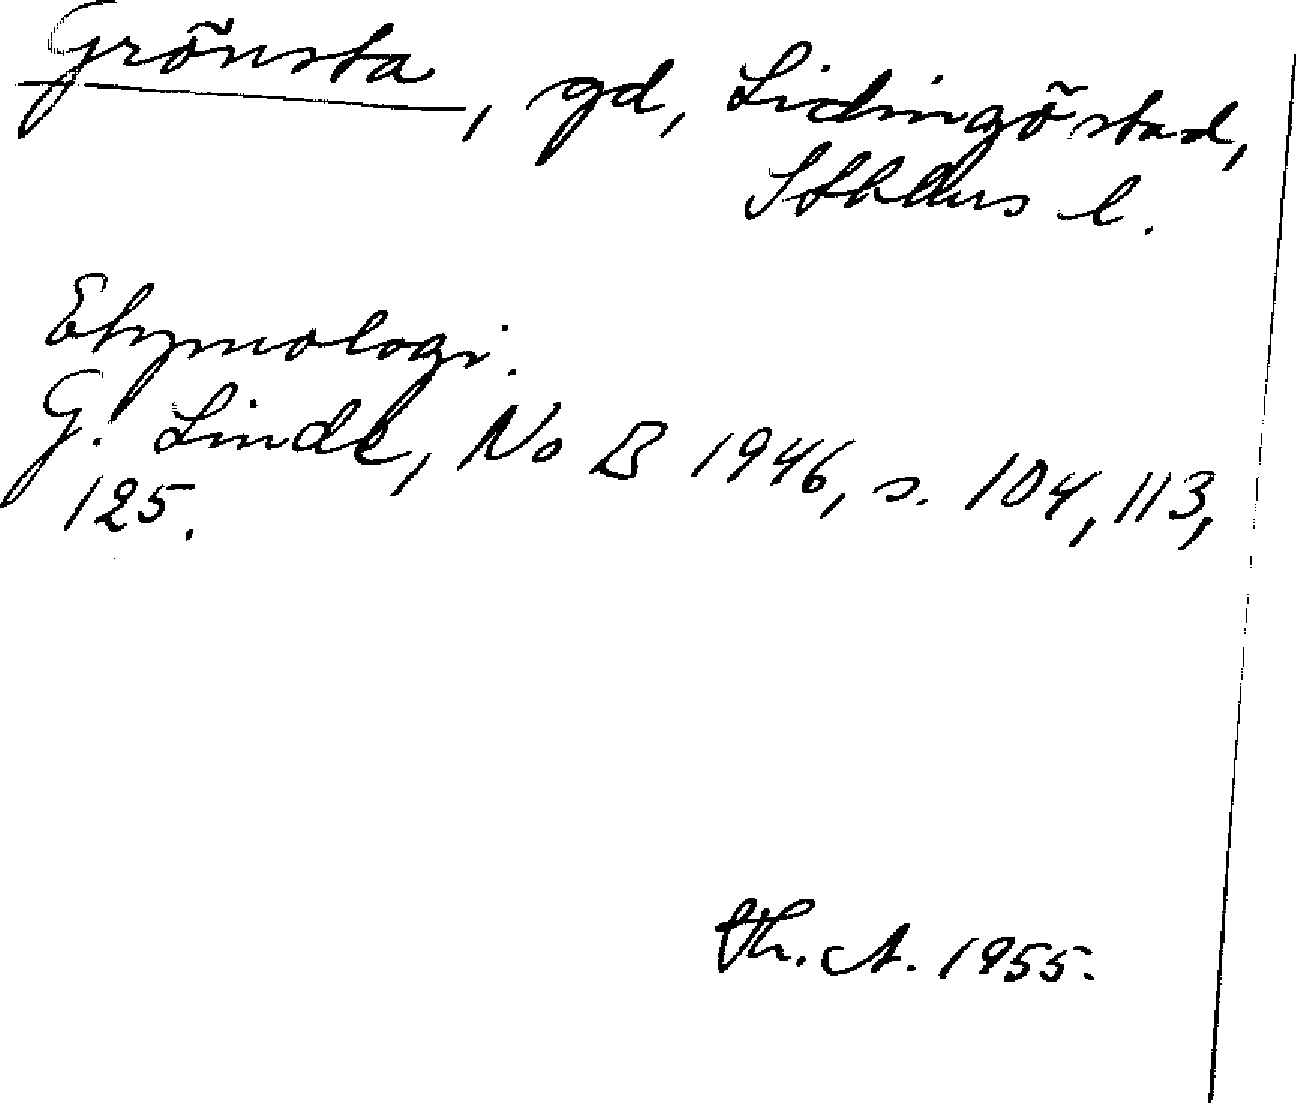 Grönsta, gd, Lidingö stad,
Sthlms l.
Etymologi.
G. Linde, NoB 1946, s. 104, 113,
125.
Th. A. 1955.